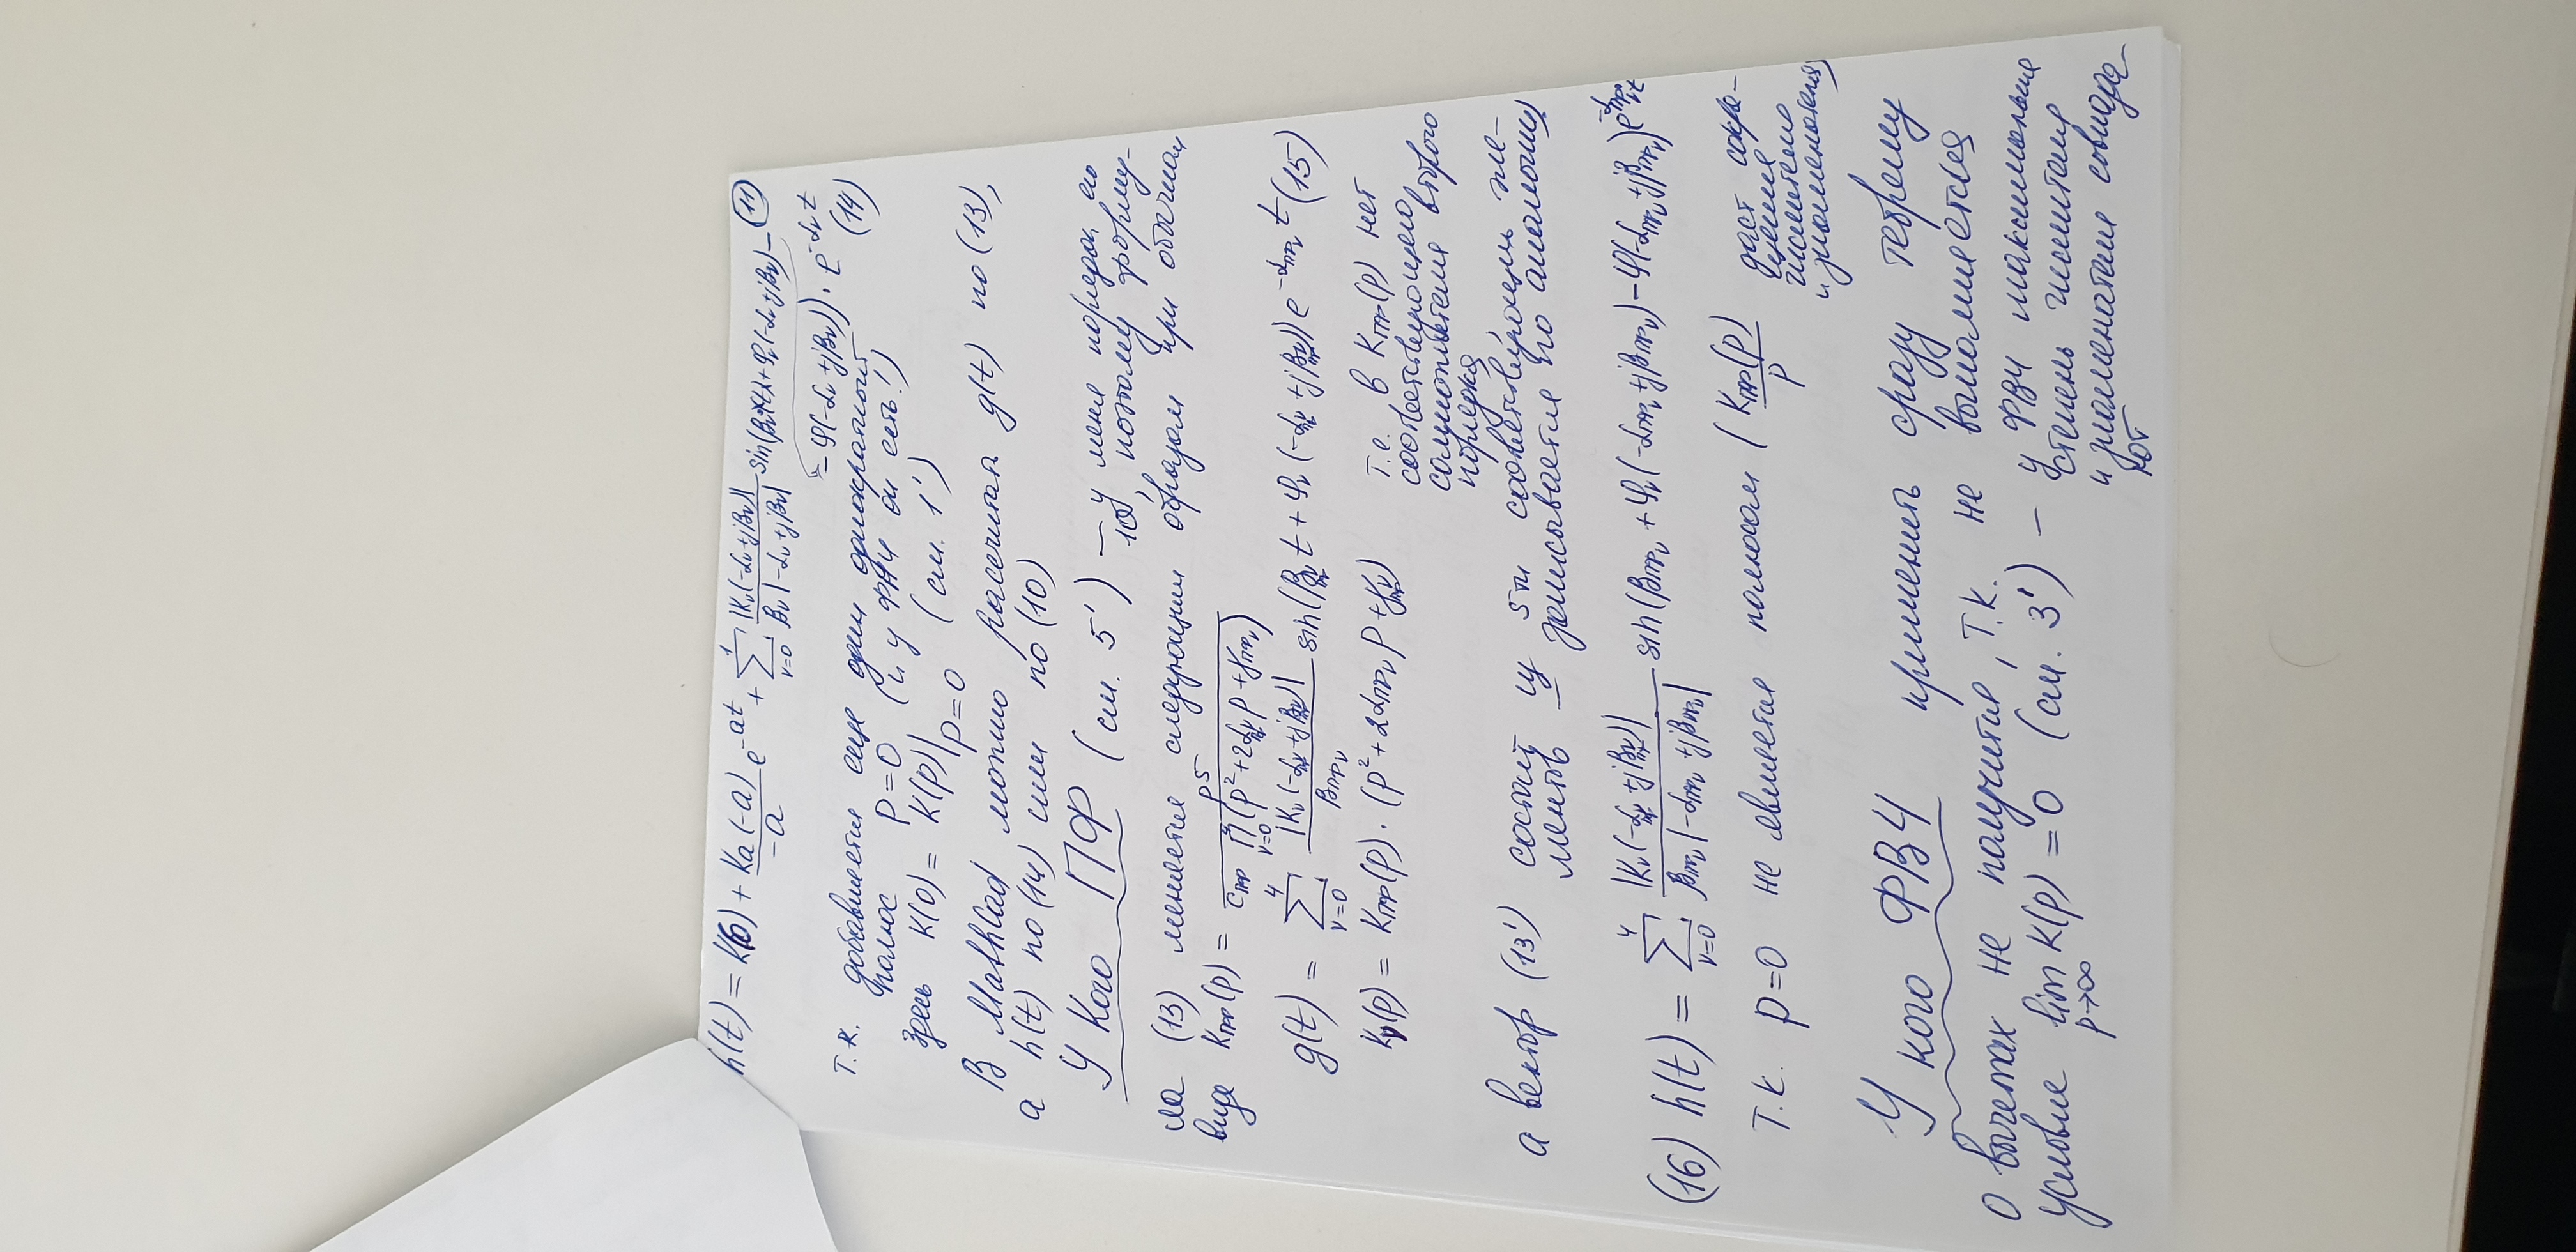 h(t) = K(0) + Ka(-a)/-a e^-at + Σ_{ν=0}^{1} |Kν(-αν+jβν)|/βν|-αν+jβν| sin(βν t + φν(-αν+jβν) –
(11)
– φ(-αν+jβν)) · e^-αν t
(14)
т.к. добавляется еще один однократный
полюс p=0 (и у ФНЧ он есть!)
Здесь K(0) = K(p)|p=0 (см. 1')
В MathCad можно рассчитать g(t) по (13),
а h(t) по (14) или по (10)
У Кого ПФ (см. 5') – у меня порядок его
10, поэтому форму-
ла (13) меняется следующим образом при обычном
виде Kпф(p) = p5 / Cпф Π_{ν=0}^{4} (p²+2αпфν p + γпфν)
g(t) = Σ_{ν=0}^{4} |Kν(-αпфν+jβпфν)|/βпфν sin(βпфν t + φν(-αпфν+jβпфν)) e^-αпфν t (15)
Kν(p) = Kпф(p) · (p²+2αпфν p + γпфν) т.е. в Kпф(p) нет
соответствующего
сомножителя второго
порядка,
а вектор (13') состоит из 5ти соответствующих эле-
ментов – записывается по аналогии)
(16) h(t) = Σ_{ν=0}^{4} |Kν(-αпфν+jβпфν)|/βпфν|-αпфν+jβпфν| sin(βпфν + φν(-αпфν+jβпфν) – φ(-αпфν+jβпфν) e^-αпфν t
Т.к. p=0 не является полюсом ( Kпф(p)/p даст сокра-
щение
числителя
и знаменателя)
У кого ФВЧ применить сразу теорему
о вычетах не получится, т.к. не выполняется
условие lim p→∞ K(p) = 0 (см. 3') – у ФВЧ максимальные
степень числителя
и знаменателя совпада-
ют